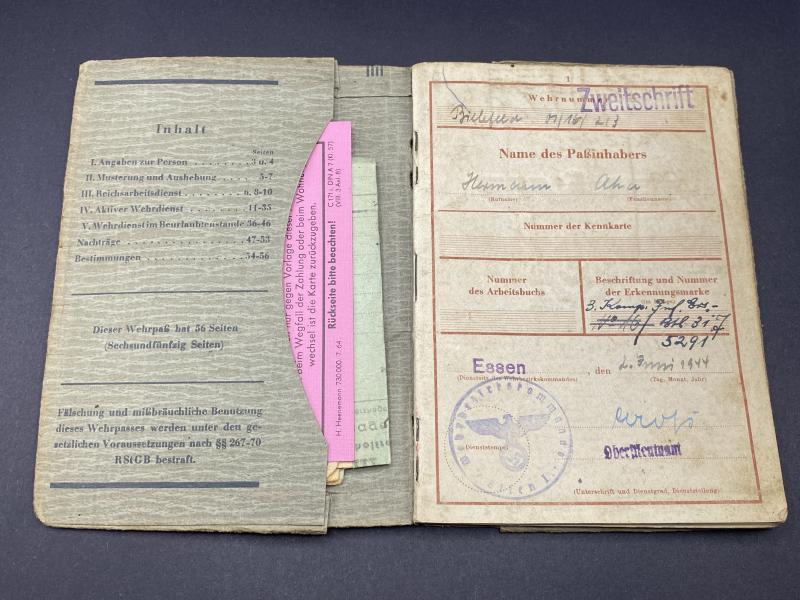 Inhalt
Seiten
I. Angaben zur Person . . . . . . . . . 3 u. 4
II. Musterung und Aushebung . . . . . . 5-7
III. Reichsarbeitsdienst . . . . . . . . . 6, 8-10
IV. Aktiver Wehrdienst . . . . . . . . . 11-35
V. Wehrdienst im Beurlaubtenstande 36-46
Nachträge . . . . . . . . . 47-53
Bestimmungen . . . . . . . . . 54-56
Dieser Wehrpaß hat 56 Seiten
(Sechsundfünfzig Seiten)
Fälschung und mißbräuchliche Benutzung
dieses Wehrpasses werden unter den ge-
setzlichen Voraussetzungen nach §§ 267-70
RStGB bestraft.
nur gegen Vorlage dieser
beim Wegfall der Zahlung oder beim Wohnu
wechsel ist die Karte zurückzugeben.
Rückseite bitte beachten!
C 171 c DIN A 7 (Kl. 57)
(VIII. 3 Anl. 8)
H. Heenemann 730 000. 7. 64
1
Wehrnummer
Zweitschrift
Bielefeld 01/16/2/3
Name des Paßinhabers
Hermann
(Rufname) (Familienname)
Nummer der Kennkarte
Nummer
des Arbeitsbuchs
Beschriftung und Nummer
der Erkennungsmarke
3. Komp. Inf. Ers.-
Btl 317
5291
Essen, den 2. Juni 1944
(Dienstsitz des Wehrbezirkskommandos) (Tag, Monat, Jahr)
Wehrbezirkskommando
Essen I
(Dienststempel)
Oberleutnant
(Unterschrift und Dienstgrad, Dienststellung)